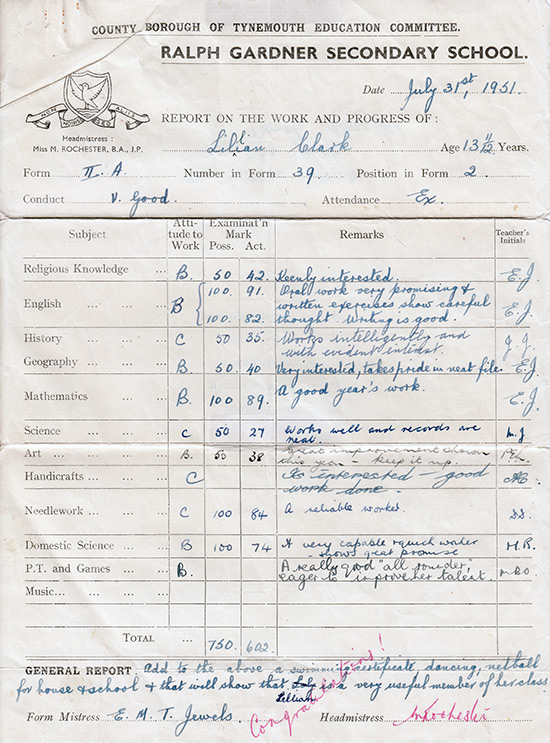 COUNTY BOROUGH OF TYNEMOUTH EDUCATION COMMITTEE.
RALPH GARDNER SECONDARY SCHOOL.
Date July 31st, 1951.
REPORT ON THE WORK AND PROGRESS OF:
Headmistress:
Miss M. ROCHESTER, B.A., J.P.
Lilian Clark Age 13 11/12 Years.
Form II. A Number in Form 39 Position in Form 2
Conduct V. Good. Attendance Ex.
Subject Attitude to Work Examinat'n Mark Poss. Act. Remarks Teacher's Initials
Religious Knowledge ... B. 50 42. Keenly interested. E.J.
English ... ... ... B 100. 91. Oral work very promising &
written exercises show careful
100. 82. thought. Writing is good. E.J.
History ... ... ... C 50 35. Works intelligently and
with evident interest. J. J.
Geography ... ... B. 50 40 Very interested, takes pride in neat file. E.J.
Mathematics ... ... B. 100 89. A good year's work. E.J.
Science ... ... ... C 50 27 Works well and records are
neat. M.J
Art ... ... ... ... B. 50 38 Great improvement shown
this year - keep it up.
Handicrafts ... ... C Is interested - good
work done.
Needlework ... ... C 100 84 A reliable worker.
Domestic Science ... B 100 74 A very capable & quick worker
- shows great promise H.B.
P.T. and Games ... B. A really good "all rounder",
eager to improve her talent.
Music... ... ... ...
TOTAL ... 750. 602.
GENERAL REPORT. Add to the above a swimming certificate, dancing, netball
for house & school & that will show that Lillian is a very useful member of her class
Congratulations!
Form Mistress E. M. T. Jewels. Headmistress M Rochester